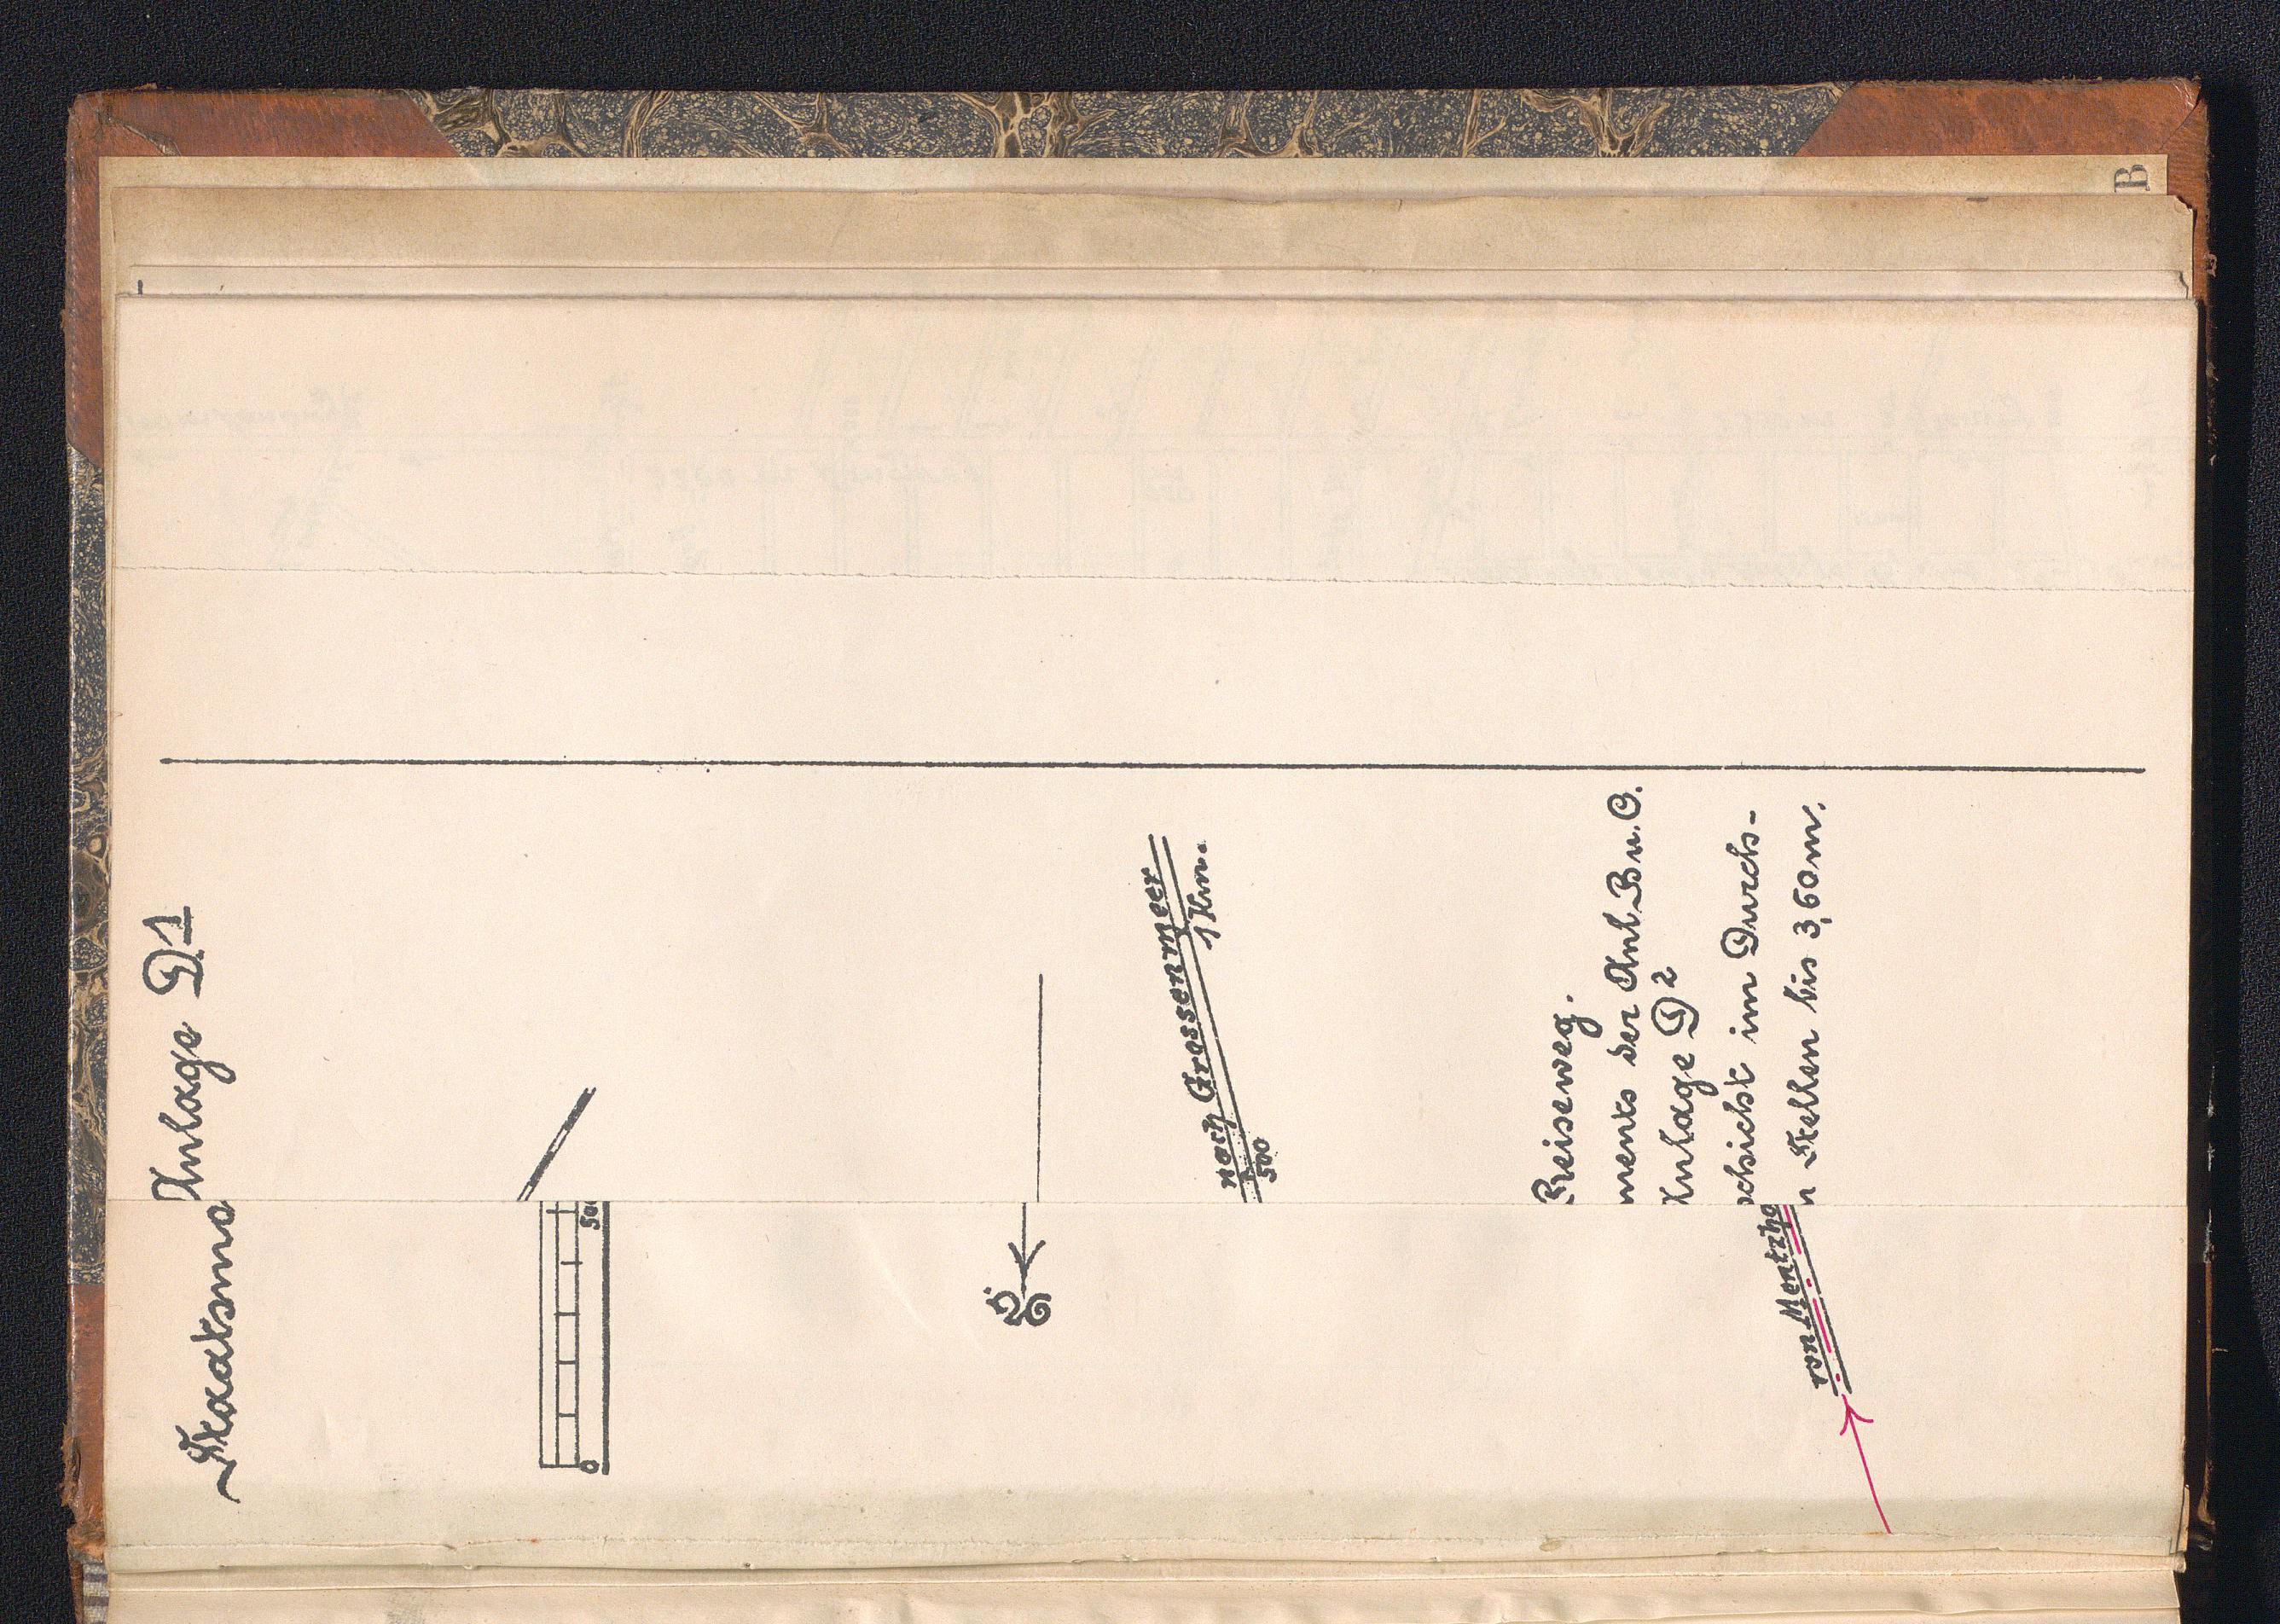 Anlage D1
Staatsmo
500
0
nach Grossenmeer
1 Km.
500
Reiseweg.
ments der Anl. B u. C.
Anlage D2
schicht im Durch-
n Stellen bis 3,60 m.
von Mentzho
B